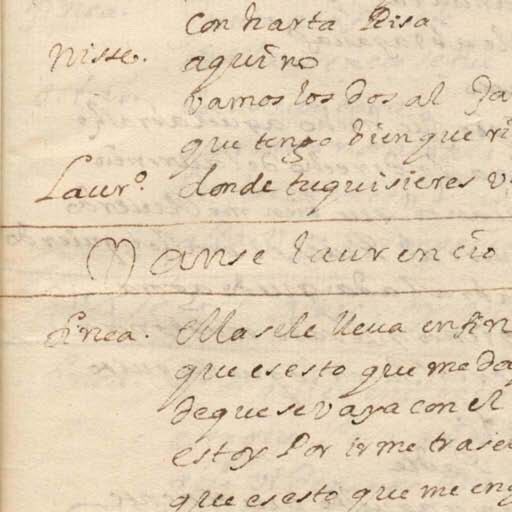 con harta Risa
Nisse. aqui no
vamos los dos al Ja
que tengo bien que ri
Laur.º donde tu quisieres v
Vanse laurencio
finea. Ella se le lleua en fin
que es esto que me da
de que se vaya con el
estoy Por irme tras el
que es esto que me eno